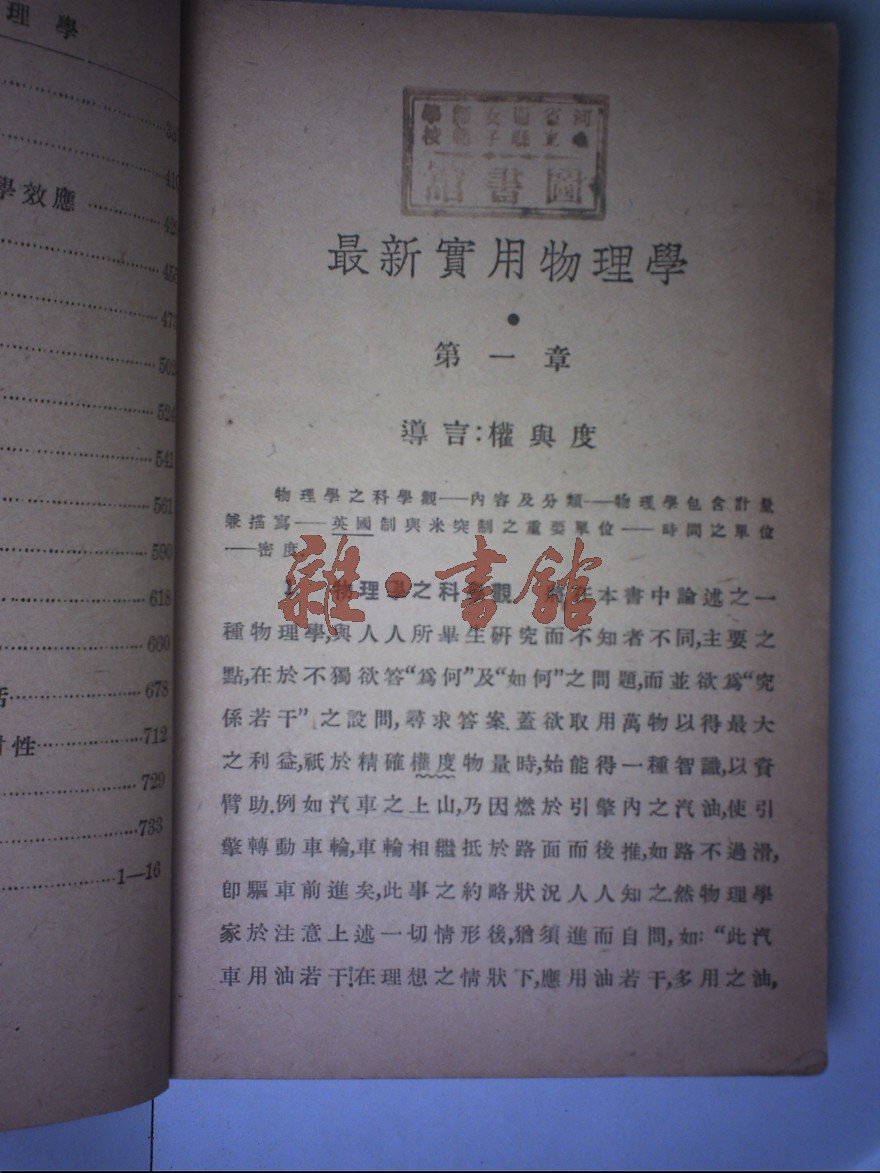 理學
410
學效應
453
502
524
541
561
590
618
660
678
712
729
733
1—16
圖書館
最新實用物理學
第一章
導言:權與度
物理學之科學觀——內容及分類——物理學包含計量
兼描寫——英國制與米突制之重要單位——時間之單位
——密度.
雜·書館
物理學之科學觀 本書中論述之一
種物理學,與人人所畢生研究而不知者不同,主要之
點,在於不獨欲答“爲何”及“如何”之問題,而並欲爲“究
係若干”之設問,尋求答案.蓋欲取用萬物以得最大
之利益,祇於精確權度物量時,始能得一種智識,以資
臂助.例如汽車之上山,乃因燃於引擎內之汽油,使引
擎轉動車輪,車輪相繼抵於路面而後推,如路不過滑,
卽驅車前進矣,此事之約略狀況人人知之.然物理學
家於注意上述一切情形後,猶須進而自問,如:“此汽
車用油若干!在理想之情狀下,應用油若干,多用之油,